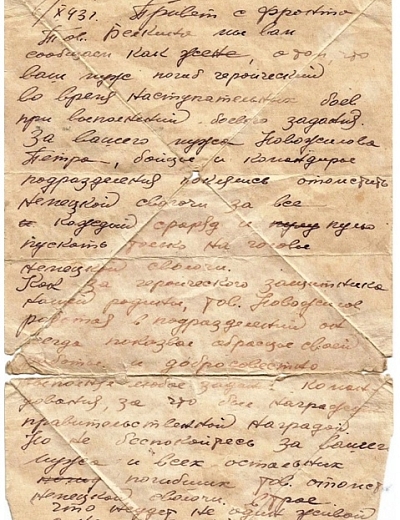 /IX 43г. Привет с фронта
Тов. Бенкина мы вам
сообщаем как жене, о том, что
ваш муж погиб геройский
во время наступательных боев
при выполнений боевого задания.
За вашего мужа Новожилова
Петра, бойцы и командиры
подразделения поклялись отомстить
немецкой сволочи за все
и каждый снаряд и пулю
пускать только на головы
немецкой сволочи.
Как за геройческого защитника
нашей родины, тов. Новожилов
работая в подразделений он
всегда показывал образцы своей
работы и добросовестно
выполнял любое задан. Коман
дования, за что был награжден
правительственной наградой
Но не беспокойтесь за вашего
мужа и всех остальных
погибших тов. отомст
немецкой сволочи втрое.
что не уйдет не один живой